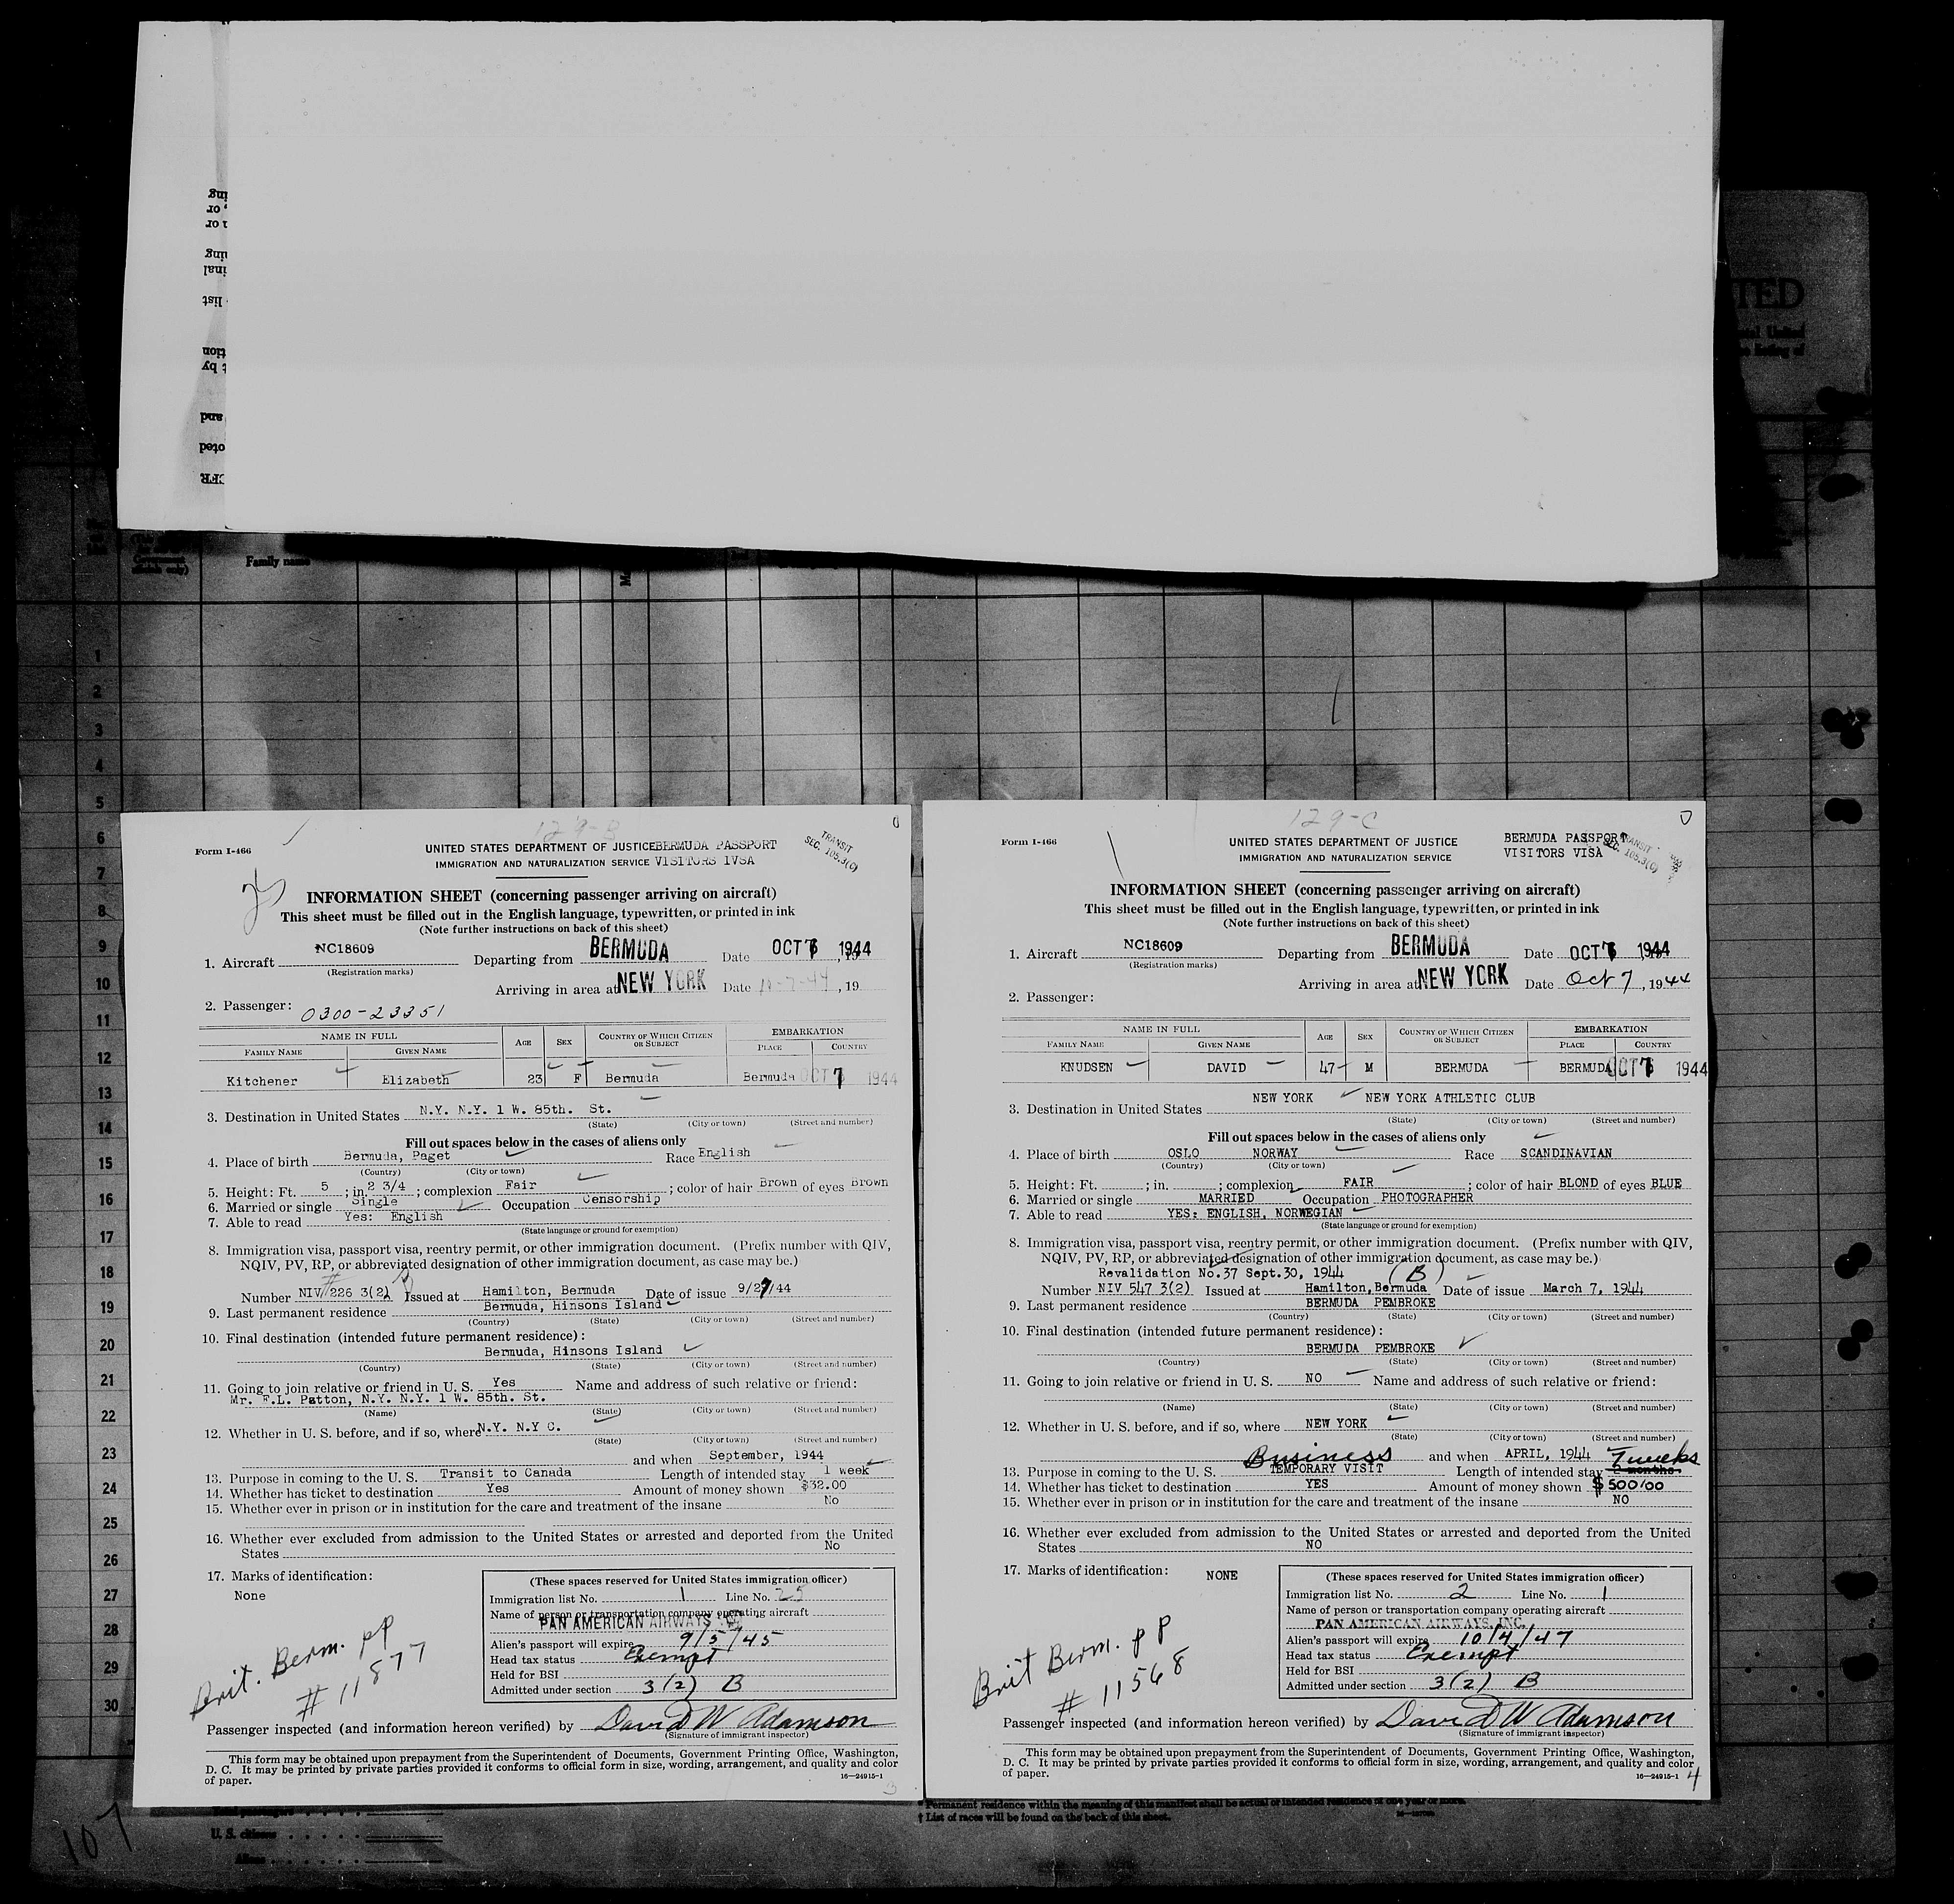 TED
Family name
1
2
3
4
5
6
7
8
9
10
11
12
13
14
15
16
17
18
19
20
21
22
23
24
25
26
27
28
29
30
129-B
Form I-466
UNITED STATES DEPARTMENT OF JUSTICE BERMUDA PASSPORT
IMMIGRATION AND NATURALIZATION SERVICE VISITORS IVSA
TRANSIT
SEC. 105.3(c)
INFORMATION SHEET (concerning passenger arriving on aircraft)
This sheet must be filled out in the English language, typewritten, or printed in ink
(Note further instructions on back of this sheet)
1. Aircraft NC18609 Departing from BERMUDA Date OCT 7 1944
(Registration marks)
Arriving in area at NEW YORK Date 10-7-44, 19
2. Passenger: 0300-23351
NAME IN FULL AGE SEX COUNTRY OF WHICH CITIZEN OR SUBJECT EMBARKATION
FAMILY NAME GIVEN NAME PLACE COUNTRY
Kitchener Elizabeth 23 F Bermuda Bermuda OCT 7 1944
3. Destination in United States N.Y. N.Y. 1 W. 85th. St.
(State) (City or town) (Street and number)
Fill out spaces below in the cases of aliens only
4. Place of birth Bermuda, Paget Race English
(Country) (City or town)
5. Height: Ft. 5; in. 2 3/4; complexion Fair; color of hair Brown of eyes Brown
6. Married or single Single Occupation Censorship
7. Able to read Yes: English
(State language or ground for exemption)
8. Immigration visa, passport visa, reentry permit, or other immigration document. (Prefix number with QIV,
NQIV, PV, RP, or abbreviated designation of other immigration document, as case may be.)
Number NIV 226 3(2) Issued at Hamilton, Bermuda Date of issue 9/27/44
9. Last permanent residence Bermuda, Hinsons Island
(Country) (State) (City or town) (Street and number)
10. Final destination (intended future permanent residence):
Bermuda, Hinsons Island
(Country) (State) (City or town) (Street and number)
11. Going to join relative or friend in U. S. Yes Name and address of such relative or friend:
Mr. F.L. Patton, N.Y. N.Y. 1 W. 85th. St.
(Name) (State) (City or town) (Street and number)
12. Whether in U. S. before, and if so, where N.Y. N.Y C.
(State) (City or town) (Street and number)
and when September, 1944
13. Purpose in coming to the U. S. Transit to Canada Length of intended stay 1 week
14. Whether has ticket to destination Yes Amount of money shown $32.00
15. Whether ever in prison or in institution for the care and treatment of the insane No
16. Whether ever excluded from admission to the United States or arrested and deported from the United
States No
17. Marks of identification:
None
(These spaces reserved for United States immigration officer)
Immigration list No. 1 Line No. 25
Name of person or transportation company operating aircraft
PAN AMERICAN AIRWAYS
Alien's passport will expire 9/5/45
Head tax status Exempt
Held for BSI
Admitted under section 3(2) B
Brit. Berm. pp
# 11877
Passenger inspected (and information hereon verified) by David W Adamson
(Signature of immigrant inspector)
This form may be obtained upon prepayment from the Superintendent of Documents, Government Printing Office, Washington,
D. C. It may be printed by private parties provided it conforms to official form in size, wording, arrangement, and quality and color
of paper.
16—24915-1
3
129-C
Form I-466
UNITED STATES DEPARTMENT OF JUSTICE BERMUDA PASSPORT
IMMIGRATION AND NATURALIZATION SERVICE VISITORS VISA
TRANSIT
SEC. 105.3(c)
INFORMATION SHEET (concerning passenger arriving on aircraft)
This sheet must be filled out in the English language, typewritten, or printed in ink
(Note further instructions on back of this sheet)
1. Aircraft NC18609 Departing from BERMUDA Date OCT 7 1944
(Registration marks)
Arriving in area at NEW YORK Date Oct 7, 1944
2. Passenger:
NAME IN FULL AGE SEX COUNTRY OF WHICH CITIZEN OR SUBJECT EMBARKATION
FAMILY NAME GIVEN NAME PLACE COUNTRY
KNUDSEN DAVID 47 M BERMUDA BERMUDA OCT 7 1944
3. Destination in United States NEW YORK NEW YORK ATHLETIC CLUB
(State) (City or town) (Street and number)
Fill out spaces below in the cases of aliens only
4. Place of birth OSLO NORWAY Race SCANDINAVIAN
(Country) (City or town)
5. Height: Ft. ; in. ; complexion FAIR; color of hair BLOND of eyes BLUE
6. Married or single MARRIED Occupation PHOTOGRAPHER
7. Able to read YES: ENGLISH, NORWEGIAN
(State language or ground for exemption)
8. Immigration visa, passport visa, reentry permit, or other immigration document. (Prefix number with QIV,
NQIV, PV, RP, or abbreviated designation of other immigration document, as case may be.)
Revalidation No.37 Sept.30, 1944 (B)
Number NIV 547 3(2) Issued at Hamilton, Bermuda Date of issue March 7, 1944
9. Last permanent residence BERMUDA PEMBROKE
(Country) (State) (City or town) (Street and number)
10. Final destination (intended future permanent residence):
BERMUDA PEMBROKE
(Country) (State) (City or town) (Street and number)
11. Going to join relative or friend in U. S. NO Name and address of such relative or friend:
(Name) (State) (City or town) (Street and number)
12. Whether in U. S. before, and if so, where NEW YORK
(State) (City or town) (Street and number)
Business and when APRIL, 1944 7 weeks
13. Purpose in coming to the U. S. TEMPORARY VISIT Length of intended stay months.
14. Whether has ticket to destination YES Amount of money shown $500/00
15. Whether ever in prison or in institution for the care and treatment of the insane NO
16. Whether ever excluded from admission to the United States or arrested and deported from the United
States NO
17. Marks of identification: NONE
(These spaces reserved for United States immigration officer)
Immigration list No. 2 Line No. 1
Name of person or transportation company operating aircraft
PAN AMERICAN AIRWAYS, INC.
Alien's passport will expire 10/4/47
Head tax status Exempt
Held for BSI
Admitted under section 3(2) B
Brit Berm. pp
# 11568
Passenger inspected (and information hereon verified) by David W Adamson
(Signature of immigrant inspector)
This form may be obtained upon prepayment from the Superintendent of Documents, Government Printing Office, Washington,
D. C. It may be printed by private parties provided it conforms to official form in size, wording, arrangement, and quality and color
of paper.
16—24915-1
4
* Permanent residence within the meaning of this manifest shall be actual or intended residence of one year or more.
† List of races will be found on the back of this sheet.
U. S. citizens
Aliens
107